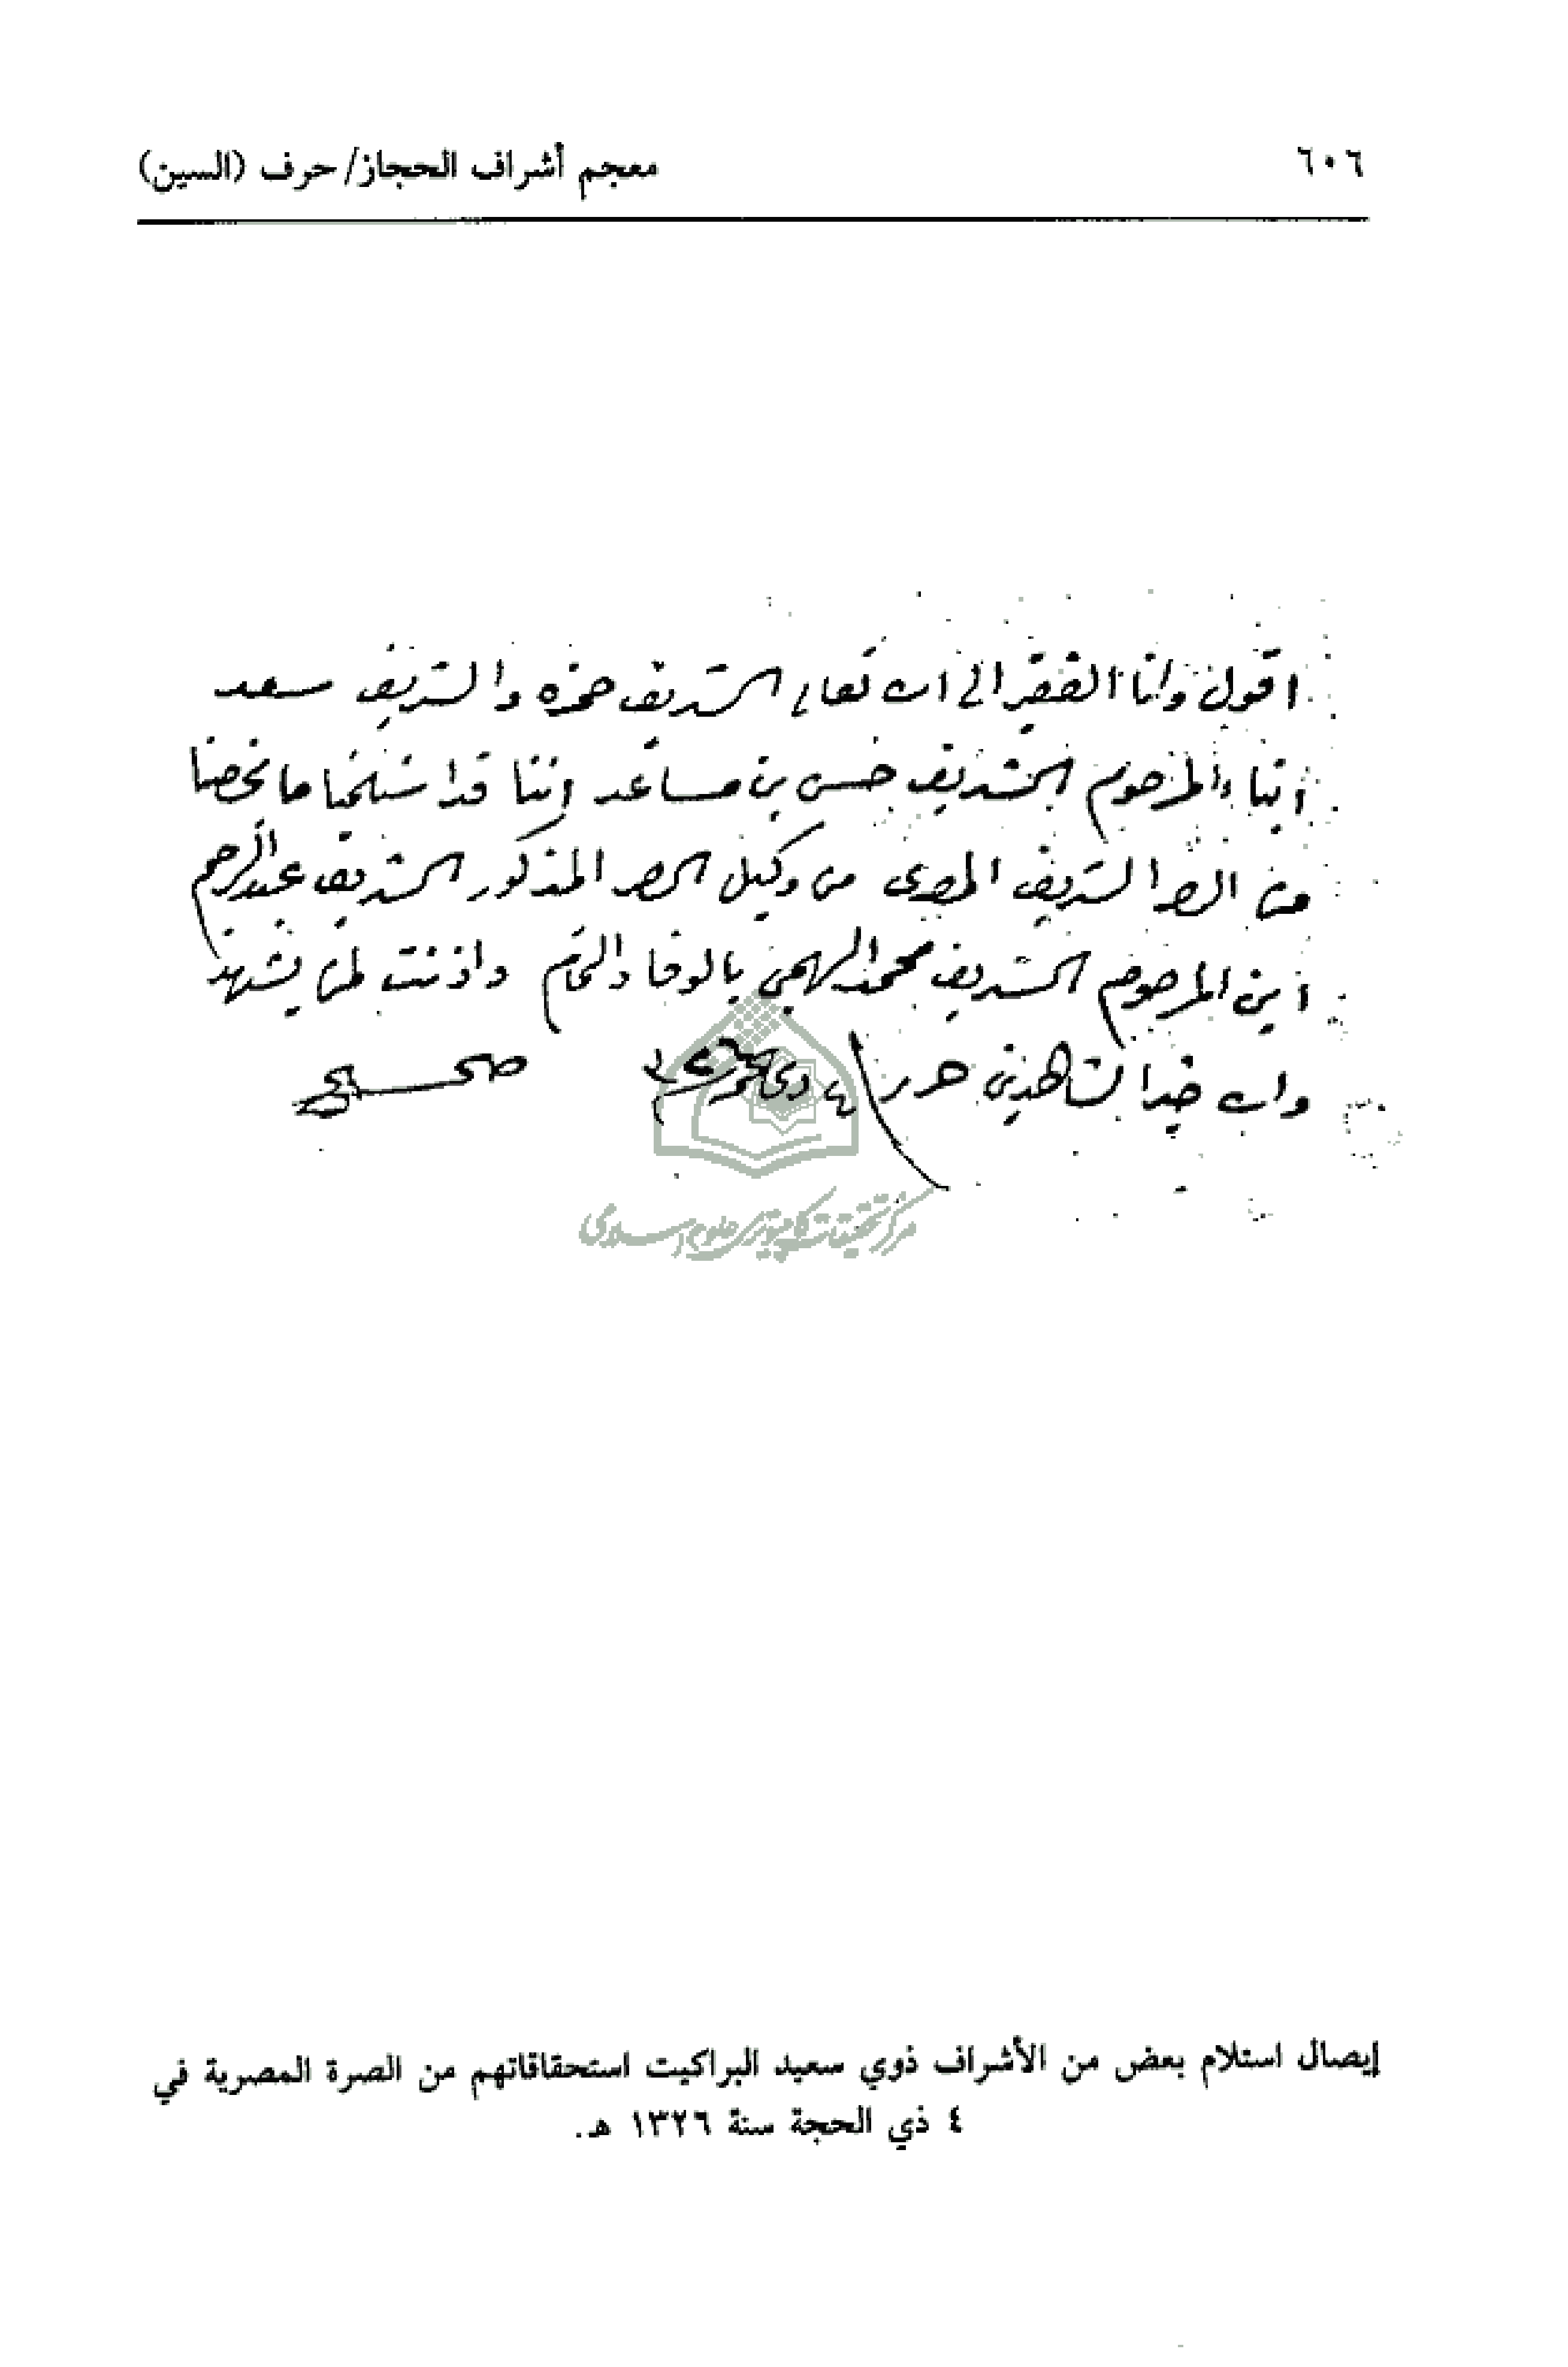 ٦٠٦
معجم أشراف الحجاز/ حرف (السين)
اقول وانا الفقير الى الله تعالى الشريف حمزه والشريف سعد
ابناء المرحوم الشريف حسن بن مساعد اننا قد استلمنا ما يخصنا
من الصر الشريف المصرى من وكيل الصر المذكور الشريف عبدالرحيم
ابن المرحوم الشريف محمد اللهيمق بالوفا والتمام واذنت لمن يشهد
والله خير الشاهدين حرر ٤ ذى الحجة ٣٢٦
صحيح
مركز تحقيقات كامپيوترى علوم اسلامى
إيصال استلام بعض من الأشراف ذوي سعيد البراكيت استحقاقاتهم من الصرة المصرية في
٤ ذي الحجة سنة ١٣٢٦ هـ.